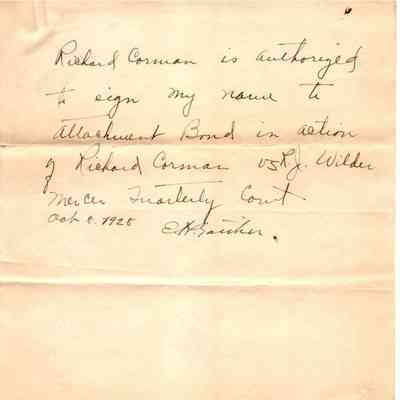 Richard Corman is authorized
to sign my name to
Attachment Bond in action
of Richard Corman vs R.J. Wilder
Mercer Quarterly Court
Oct 8. 1928
C.H.